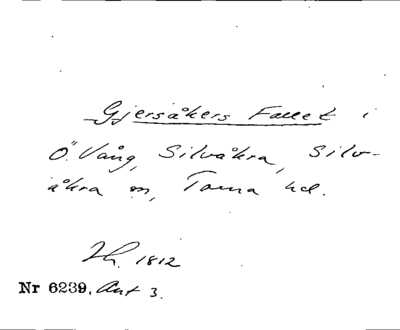 Gjersåkers Fallet i
Ö. Vång, Silvåkra, Silv-
åkra sn, Torna hd.
Lh. 1812
Nr 6239. Ant 3.